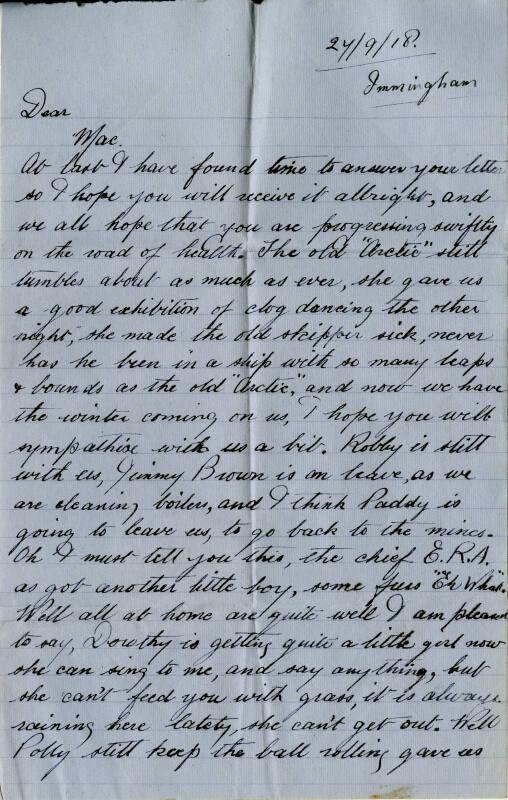 27/9/18.
Immingham
Dear
Mac.
At last I have found time to answer your letter
so I hope you will receive it allright, and
we all hope that you are progressing swiftly
on the road of health. The old "Arctic" still
tumbles about as much as ever, she gave us
a good exhibition of clog dancing the other
night, she made the old skipper sick, never
has he been in a ship with so many leaps
& bounds as the old "Arctic," and now we have
the winter coming on us, I hope you will
sympathise with us a bit. Robby is still
with us, Jimmy Brown is on leave, as we
are cleaning boilers, and I think Paddy is
going to leave us, to go back to the mines.
Oh I must tell you this, the chief E.R.A.
as got another little boy, some fuss "Eh What".
Well all at home are quite well I am pleased
to say, Dorothy is getting quite a little girl now
she can sing to me, and say anything, but
she can't feed you with grass, it is always
raining here lately, she can't get out. Well
Polly still keep the ball rolling gave us